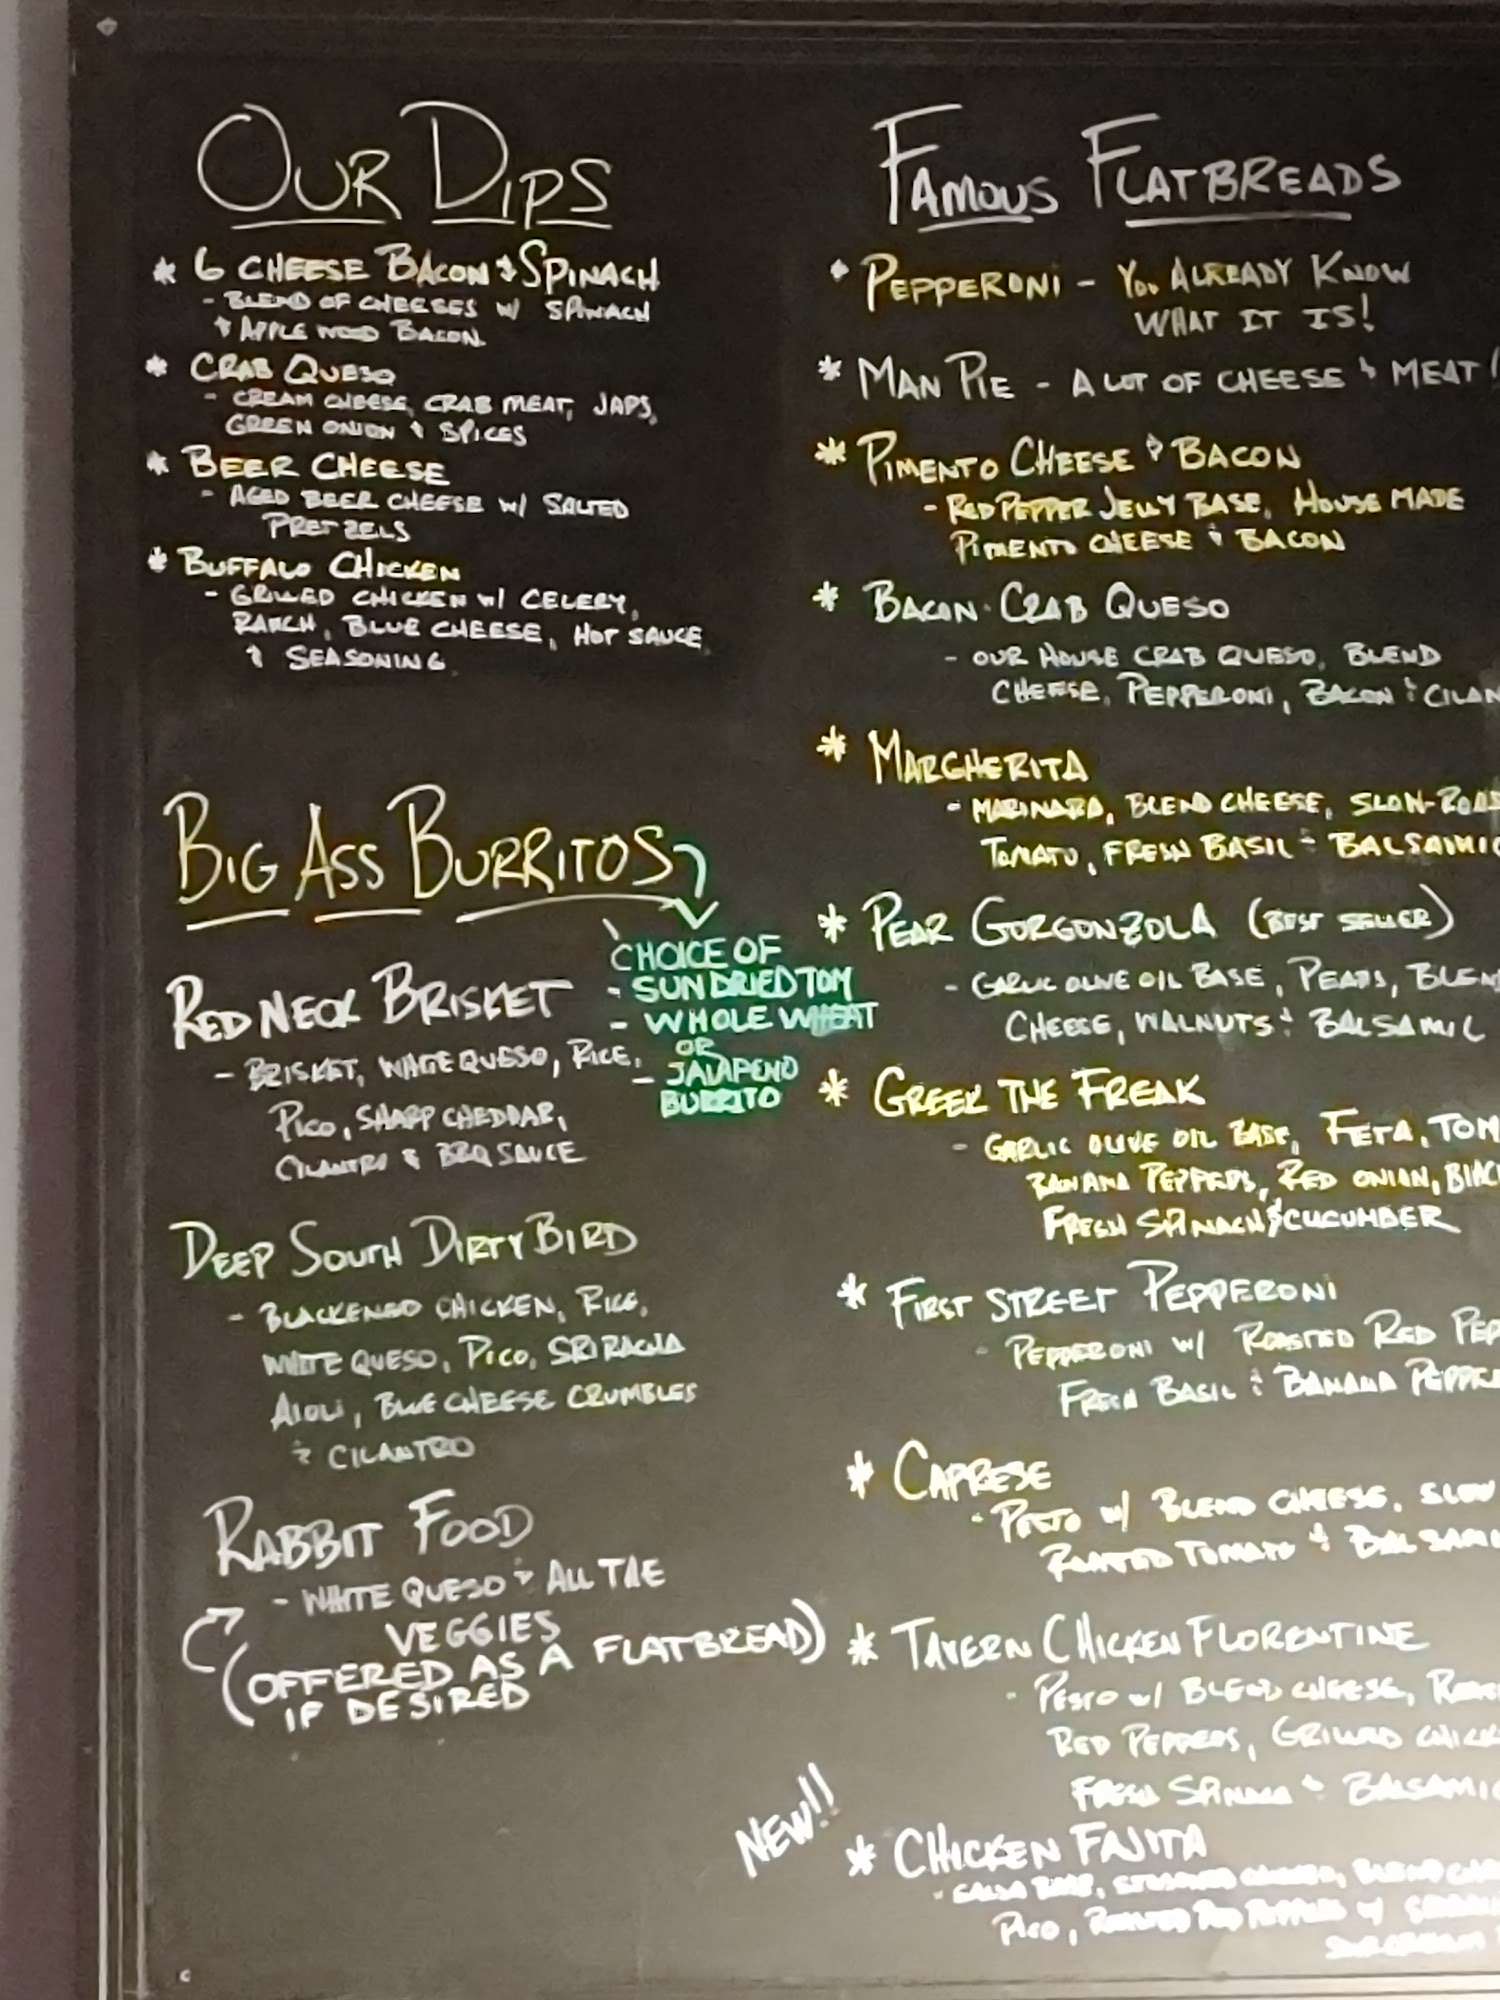 OUR DIPS
* 6 CHEESE BACON & SPINACH
- BLEND OF CHEESES W/ SPINACH
& APPLE WOOD BACON
* CRAB QUESO
- CREAM CHEESE, CRAB MEAT, JAPS,
GREEN ONION & SPICES
* BEER CHEESE
- AGED BEER CHEESE W/ SALTED
PRETZELS
* BUFFALO CHICKEN
- GRILLED CHICKEN W/ CELERY,
RANCH, BLUE CHEESE, HOT SAUCE
& SEASONING
BIG ASS BURRITOS
CHOICE OF
- SUNDRIED TOM
- WHOLE WHEAT
OR
- JALAPENO
BURRITO
RED NECK BRISKET
- BRISKET, WHITE QUESO, RICE,
PICO, SHARP CHEDDAR,
CILANTRO & BBQ SAUCE
DEEP SOUTH DIRTY BIRD
- BLACKENED CHICKEN, RICE,
WHITE QUESO, PICO, SRIRACHA
AIOLI, BLUE CHEESE CRUMBLES
& CILANTRO
RABBIT FOOD
- WHITE QUESO & ALL THE
VEGGIES
(OFFERED AS A FLATBREAD)
IF DESIRED
FAMOUS FLATBREADS
* PEPPERONI - YOU ALREADY KNOW
WHAT IT IS!
* MAN PIE - A LOT OF CHEESE & MEAT!
* PIMENTO CHEESE & BACON
- RED PEPPER JELLY BASE, HOUSE MADE
PIMENTO CHEESE & BACON
* BACON CRAB QUESO
- OUR HOUSE CRAB QUESO, BLEND
CHEESE, PEPPERONI, BACON & CILAN
* MARGHERITA
- MARINARA, BLEND CHEESE, SLOW-ROAS
TOMATO, FRESH BASIL & BALSAMIC
* PEAR GORGONZOLA (BEST SELLER)
- GARLIC OLIVE OIL BASE, PEARS, BLEN
CHEESE, WALNUTS & BALSAMIC
* GREEK THE FREAK
- GARLIC OLIVE OIL BASE, FETA, TOM
BANANA PEPPERS, RED ONION, BLAC
FRESH SPINACH & CUCUMBER
* FIRST STREET PEPPERONI
- PEPPERONI W/ ROASTED RED PEP
FRESH BASIL & BANANA PEPPER
* CAPRESE
- PESTO W/ BLEND CHEESE, SLOW
ROASTED TOMATO & BALSAMI
* TAVERN CHICKEN FLORENTINE
- PESTO W/ BLEND CHEESE, ROAS
RED PEPPERS, GRILLED CHICK
FRESH SPINACH & BALSAMIC
NEW!!
* CHICKEN FAJITA
- SALSA BASE, SEASONED CHICKEN, BLEND CHE
PICO, ROASTED RED PEPPERS W/
SOUR CREAM